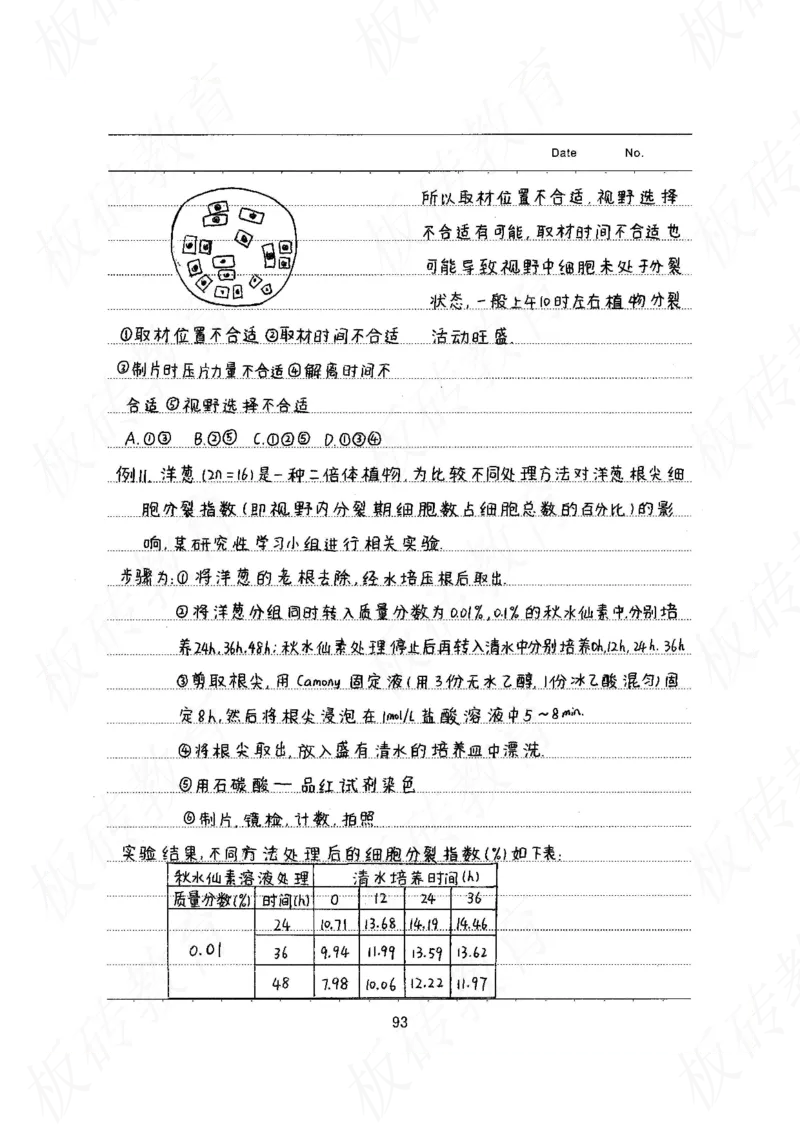 Date No.
所以取材位置不合适,视野选择
不合适有可能,取材时间不合适也
可能导致视野中细胞未处于分裂
状态,一般上午10时左右植物分裂
活动旺盛.
①取材位置不合适 ②取材时间不合适
③制片时压片力量不合适④解离时间不
合适 ⑤视野选择不合适
A.①③ B.②⑤ C.①②⑤ D.①③④
例11. 洋葱(2n=16)是一种二倍体植物,为比较不同处理方法对洋葱根尖细
胞分裂指数(即视野内分裂期细胞数占细胞总数的百分比)的影
响,某研究性学习小组进行相关实验.
步骤为:①将洋葱的老根去除,经水培压根后取出.
②将洋葱分组同时转入质量分数为0.01%,0.1%的秋水仙素中,分别培
养24h,36h,48h;秋水仙素处理停止后再转入清水中分别培养0h,12h,24h.36h
③剪取根尖,用Camony固定液(用3份无水乙醇,1份冰乙酸混匀)固
定8h,然后将根尖浸泡在1mol/L盐酸溶液中5~8min.
④将根尖取出,放入盛有清水的培养皿中漂洗.
⑤用石碳酸一品红试剂染色
⑥制片,镜检,计数,拍照
实验结果,不同方法处理后的细胞分裂指数(%)如下表:
秋水仙素溶液处理 清水培养时间(h)
质量分数(%) 时间(h) 0 12 24 36
24 10.71 13.68 14.19 14.46
0.01 36 9.94 11.99 13.59 13.62
48 7.98 10.06 12.22 11.97
93
板砖教育